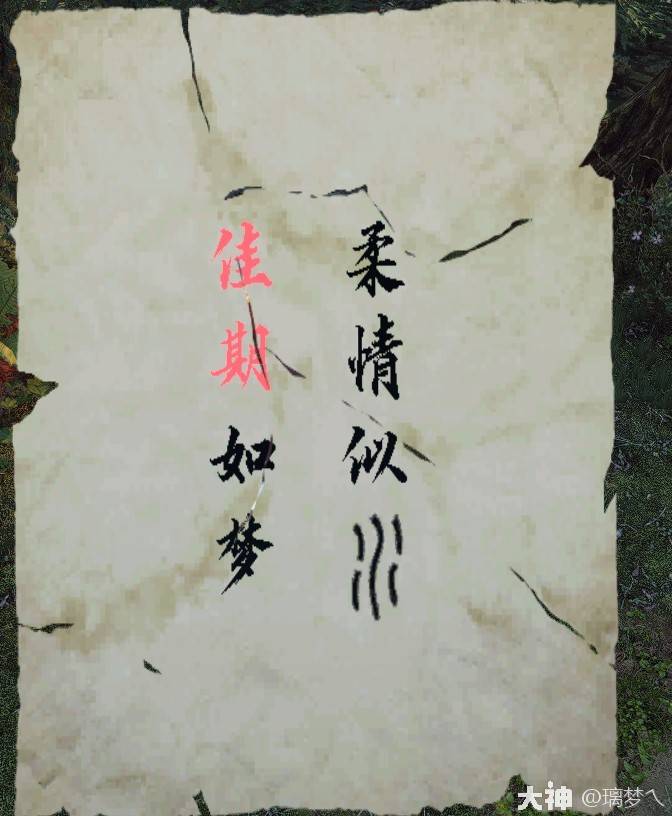 柔情似水
佳期如梦
大神 @璃梦ㄟ